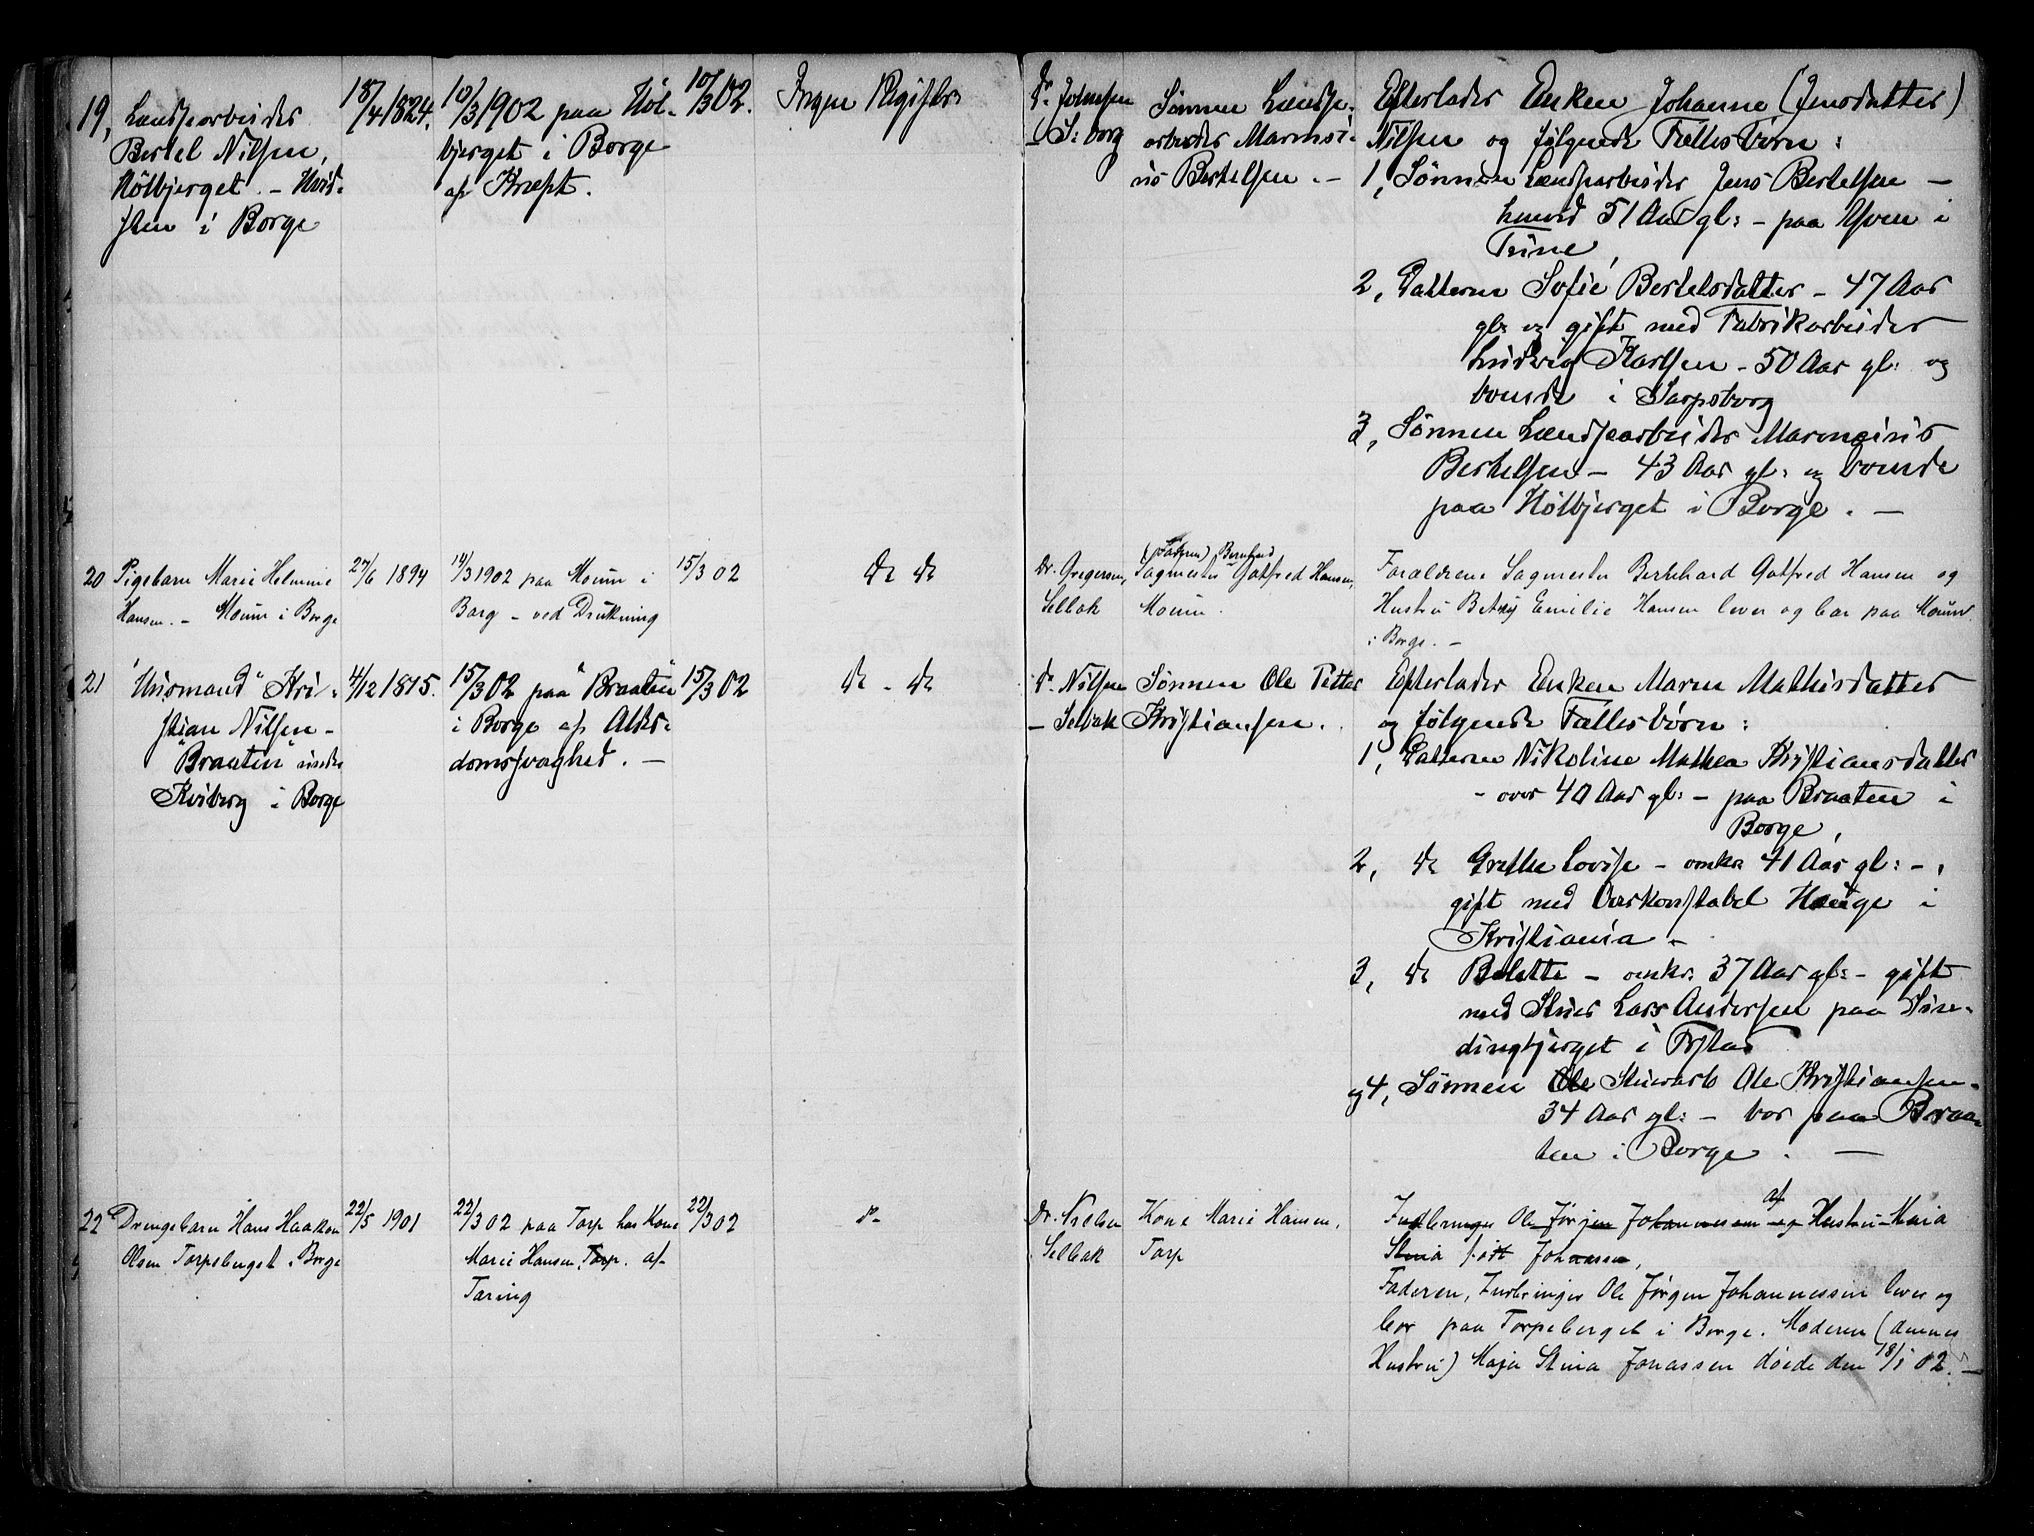 19, Landsearbeider
Bertel Nilsen,
Hölbjerget - Hvid-
sten i Borge
18/4 1824.
10/3 1902 paa Höl-
bjerget i Borge
af Kræft.
10/3 02.
Ingen
Dr. Johnsen
- S:borg
Sönnen Lændse-
arbeider Marinsi-
us Bertelsen. -
Efterlader Enken Johanne (Jensdatter)
Nilsen og følgende Fællesbörn:
1, Sönnen Lændsearbeider Jens Bertelsen -
51 Aar gl: - paa i
Tune,
2, Datteren Sofie Bertelsdatter - 47 Aar
gl: og gift med Fabrikarbeider
Ludvig Karlsen - 50 Aar gl: og
boende i Sarpsborg
3, Sönnen Lændsearbeider
Bertelsen - 43 Aar gl: og boende
paa Hölbjerget i Borge. -
20 Pigebarn Marie Helmine
Hansen. - Moum i Borge
27/6 1894
14/3 1902 paa Moum i
Borg - ved Drukning
15/3 02
do do
Dr. Gregersen,
Selbak
(Faderen) Bernhard
Sagmester Gotfred Hansen,
Moum.
Forældrene Sagmester Bernhard Gotfred Hansen og
Hustru Betsy Emilie Hansen lever og bor paa Moum
i Borge. -
21 "Husmand" Kri-
stian Nilsen -
"Braaten" under
Kviberg i Borge
4/12 1815.
15/3 02 paa "Braaten"
i Borge af Alder-
domssvaghed. -
15/3 02
do - do
Dr. Nilsen
- Selbak
Sönnen Ole Petter
Kristiansen.
Efterlader Enken Maren Mathisdatter
og følgende Fællesbörn:
1, Datteren Nikoline Mathea Kristiansdatter
- over 40 Aar gl: - paa Braaten i
Borge,
2, do Grethe Lovise - omkr. 41 Aar gl: -,
gift med Overkonstabel Hauge i
Kristiania -
3, do Bolette - omkr. 37 Aar gl: - gift
med Stuer Lars Andersen paa
i
og 4, Sönnen Ole Ole Kristiansen -
34 Aar gl: - bor paa Braa-
ten i Borge. -
22 Drengebarn Hans Haakon
Olsen Torpeberget i Borge
22/5 1901
22/3 02 paa Torp hos Kone
Marie Hansen, Torp. af
Tæring
22/3 02
do
Dr. Nielsen
Selbak
Kone Marie Hansen,
Torp
af
Ole Jørgen Johannessen og Hustru Maia
Stina født Johnassen,
Faderen, Ole Jørgen Johannessen lever og
bor paa Torpeberget i Borge. Moderen (dennes
Hustru) Maja Stina Jonassen døde den 18/1 02. -